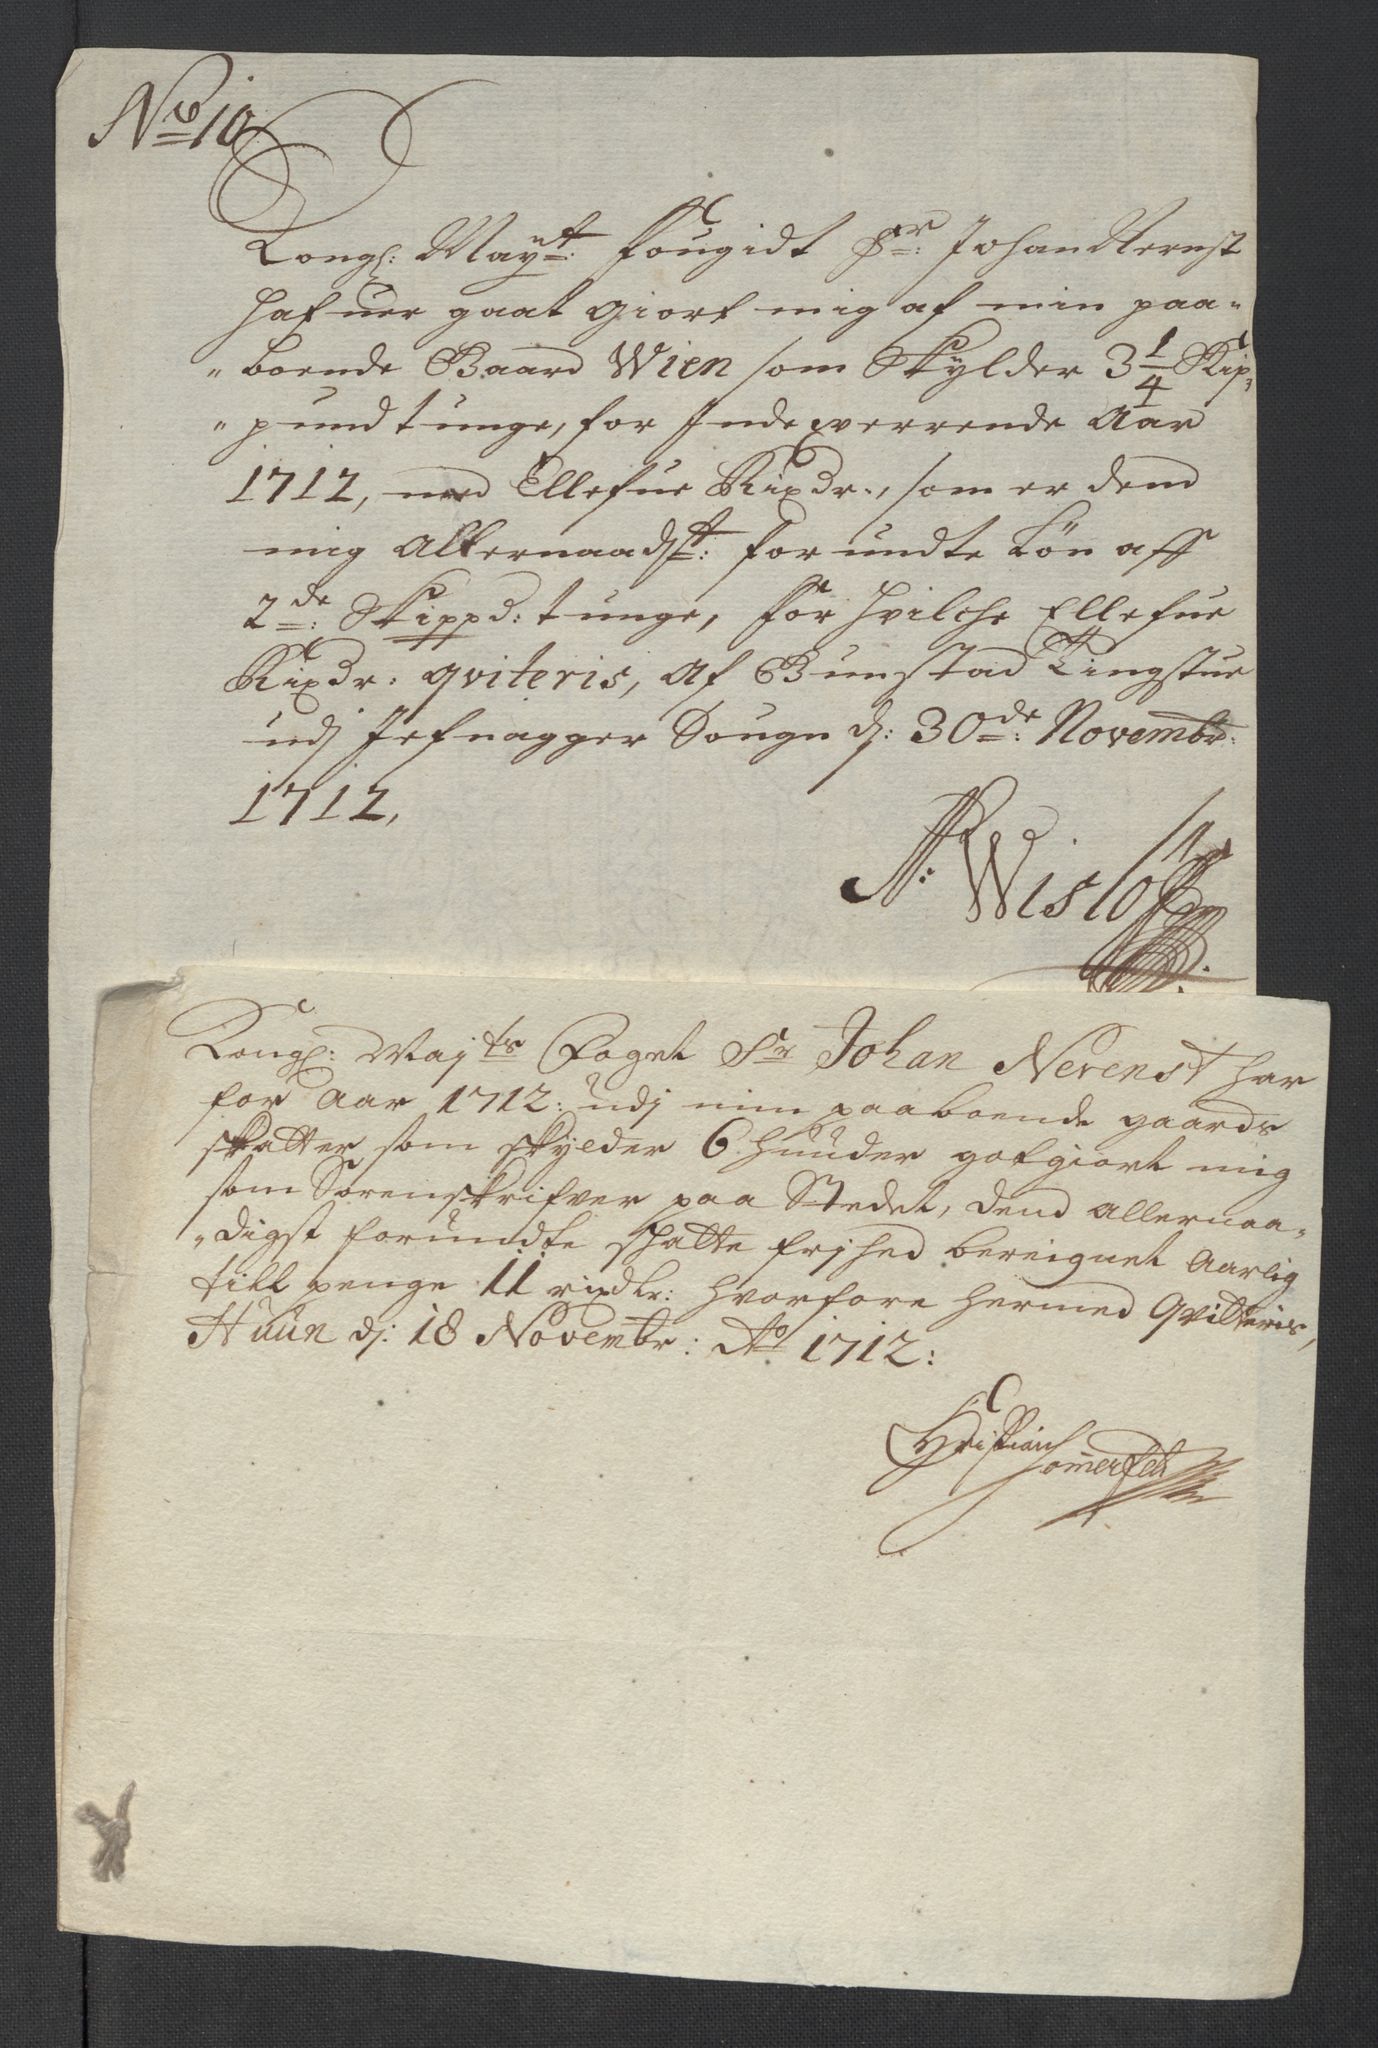 No 10
Kongl: Mayt: Fougidt Sr: Johan Nernst
hafuer gaat giort mig af min paa-
boende Gaard Wien som Skylder 3 1/4 Skip-
pund tunge, for Indeværrende Aar
1712, med Ellefue Rixdr., som er dend
mig Allernaadst: forundte Løn aff
2de: Skippd: tunge, for hvilche Ellefue
Rixdr: qviteris, af Bunstad Tingstue
udj Jefnagger Sougn dj: 30de: Novembr:
1712,
Wisløff
Kongl: Majts Foget Sr Johan Nerenst har
for Aar 1712: udj min paaboende gaards
skatter som skylder 6 huuder gotgiort mig
som Sorenskrifver paa Stedet, dend allernaa-
digst forundte skatte frjhed bereignet Aarlig
till penge 11 rixdlr: hvorfore hermed Qvitteris,
Huun dj: 18 Novembr: Ao 1712:
Christian Somerfeldt